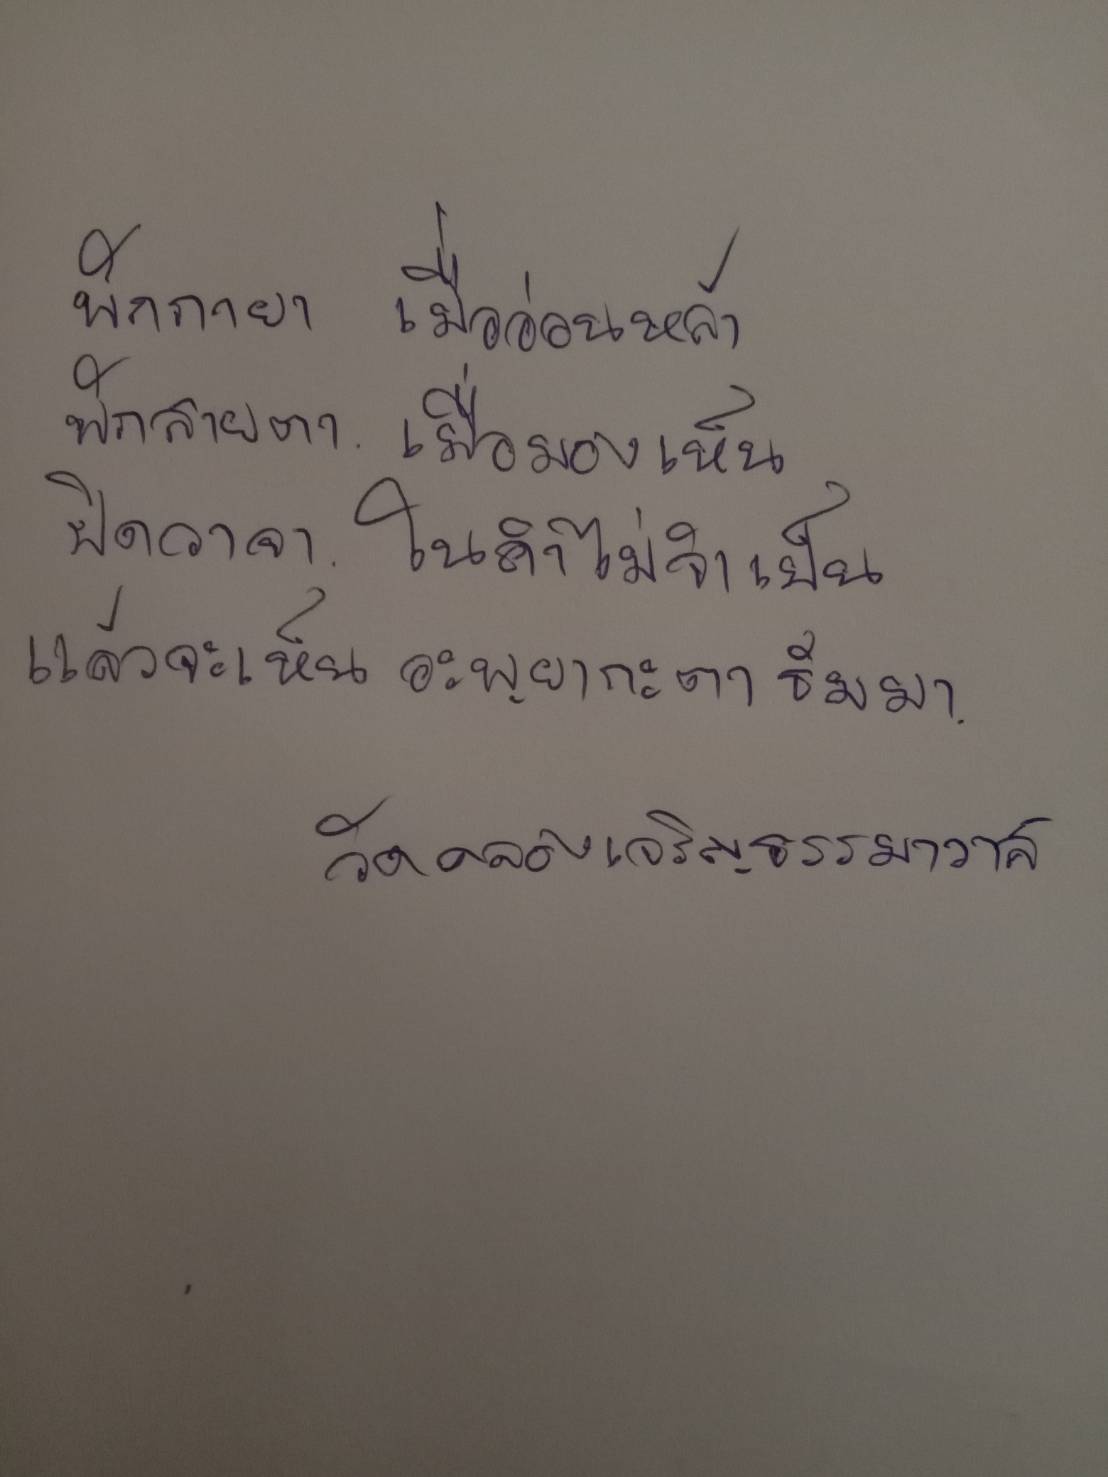 พักกายา เมื่ออ่อนหล้า
พักสายตา. เมื่อมองเห็น
ปิดวาจา. ในคำไม่จำเป็น
แล้วจะเห็น อะพฺยากะตา ธัมมา.
วัดคลองเจริญธรรมาวาส